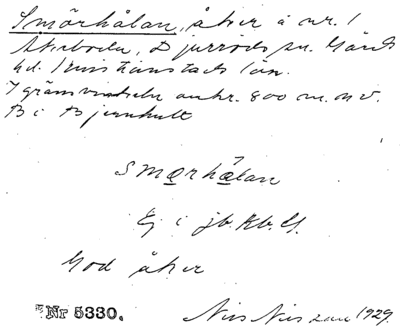 Smörhålan, åker å nr. 1
Djurröds sn. Gärds
hd. Kristianstads län.
I gräns omkr. 800 m. n v.
B i Bjernhult
Smørhålan
Ej i jb. Kb. G.
God åker
Nr 5330. Nils Nilsson 1929.